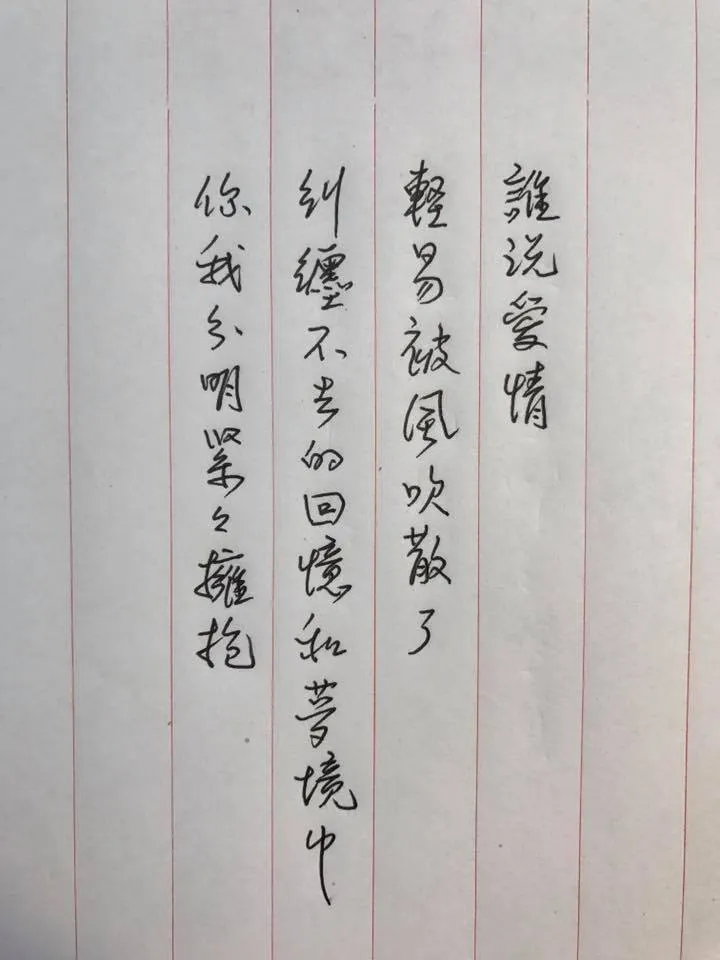 誰说愛情
軽易被風吹散了
糾纏不去的回憶和夢境中
你我分明緊々擁抱